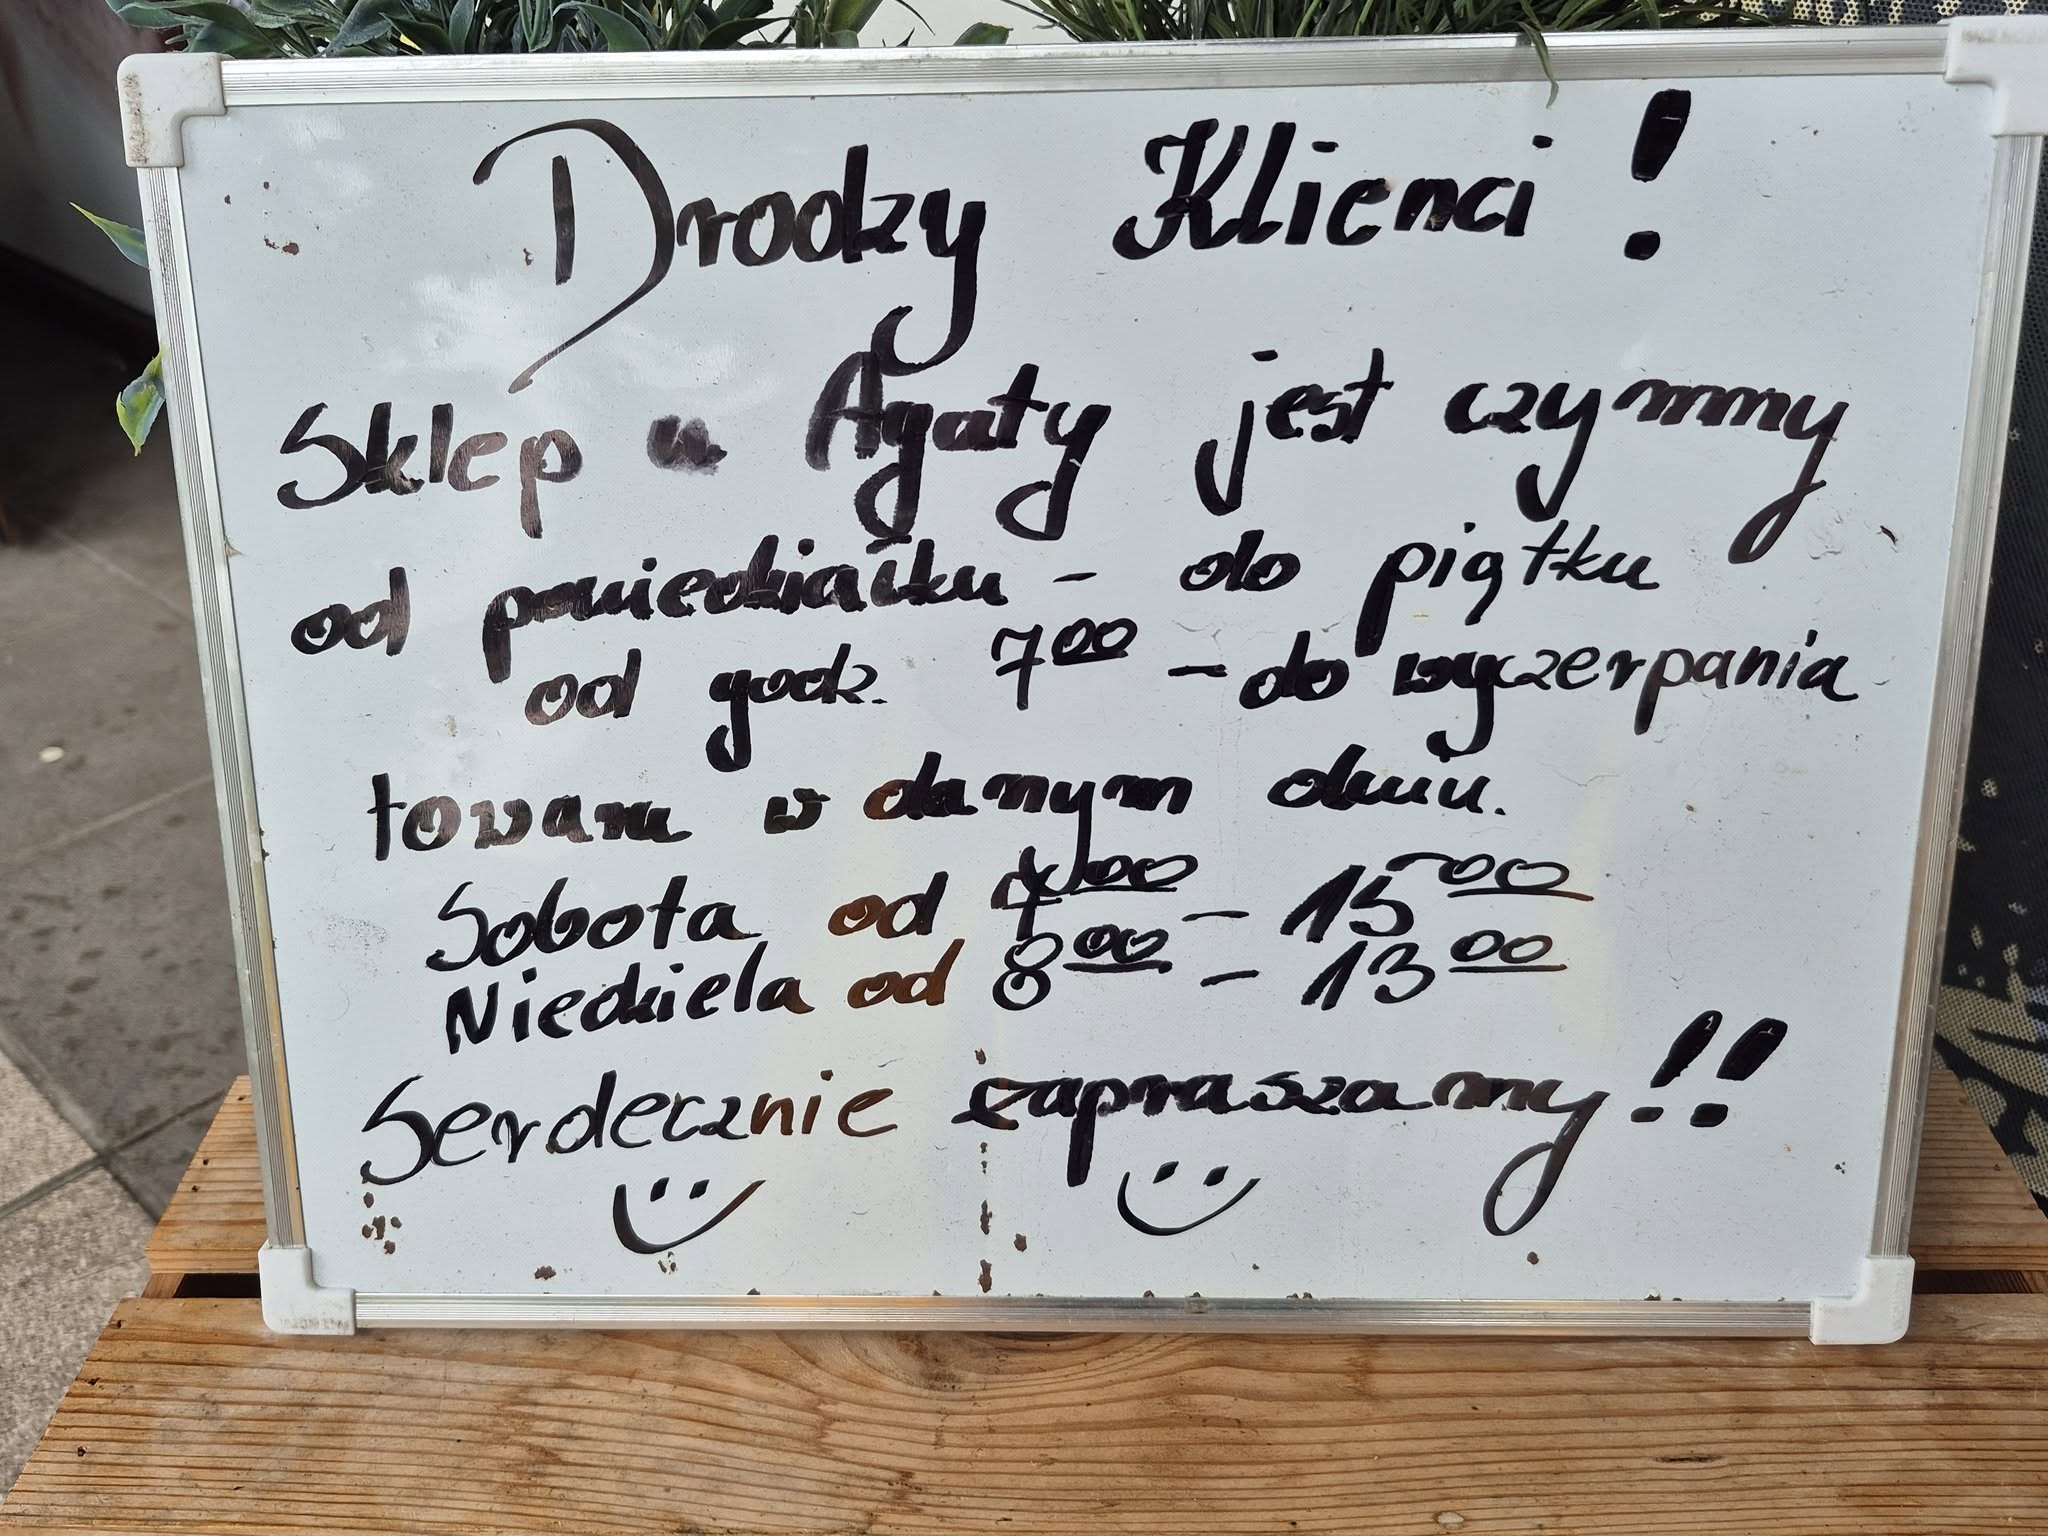 Drodzy Klienci!
Sklep u Agaty jest czynny
od poniedziałku - do piątku
od godz. 7⁰⁰ - do wyczerpania
towaru w danym dniu.
Sobota od 7⁰⁰ - 15⁰⁰
Niedziela od 8⁰⁰ - 13⁰⁰
Serdecznie zapraszamy!!